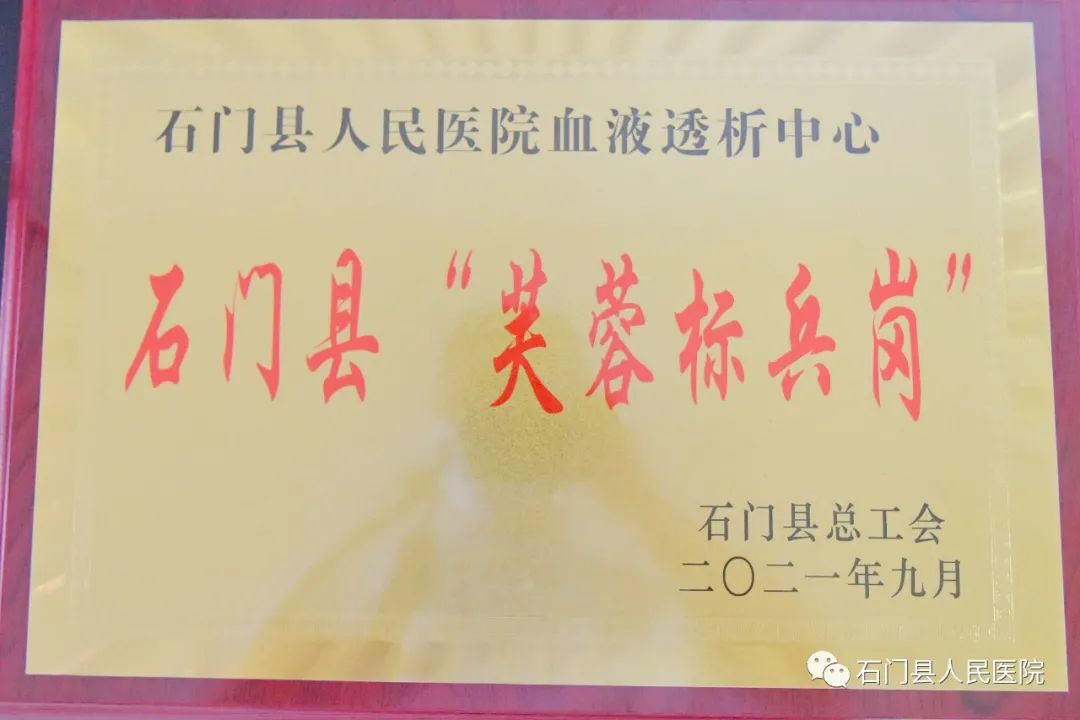 石门县人民医院血液透析中心
石门县“芙蓉标兵岗”
石门县总工会
二〇二一年九月
石门县人民医院